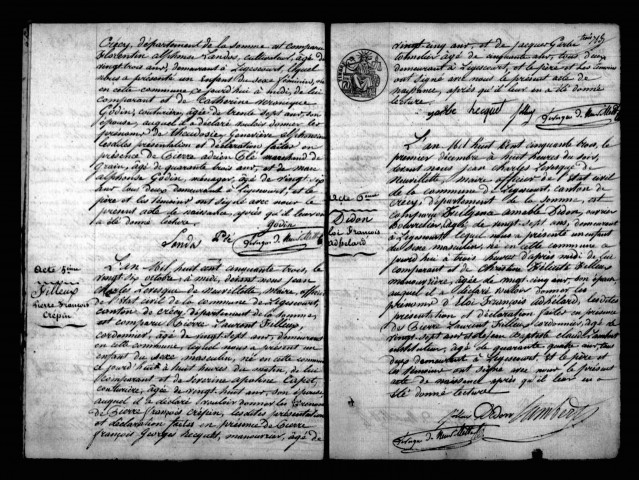 Crécy, département de la Somme est comparu
Florentin Alphonse Landos, cultivateur, âgé de
vingt trois ans, demeurant à Ligescourt lequel
nous a présenté un enfant du sexe féminin, né
en cette commune ce jourd'hui à midi, de lui
comparant et de Catherine Véronique
Godin, couturière âgée de trente sept ans, son
épouse, auquel il a déclaré vouloir donner les
prénoms de Théudosie, Geneviève Alphonsine
lesdites présentation et déclaration faites en
présence de Pierre Adrien marchand de
grain, âgé de quarante trois ans, et de Jean
Alphonse Godin, ménager, âgé de vingt six
ans tous deux demeurant à Ligescourt, et le
père et les témoins ont signé avec nous le
présent acte de naissance, après qu'il leur en
a été donné lecture.
Godin
Landos
Acte 5ème
Filleux
Pierre François
Crépin
L'an Mil huit cent cinquante trois, le
vingt six octobre à midi, devant nous Jean
Charles Levesque de Neuvillette Maire, officier
de l'état civil de la commune de Ligescourt,
canton de Crécy, département de la Somme,
est comparu Pierre Laurent Filleux,
cordonnier, âgé de vingt sept ans, demeurant
en cette commune, lequel nous a présenté un
enfant du sexe masculin, né en cette commune
ce jourd'huit à huit heures du matin, de lui
comparant et de Séverine Apoline Capet,
couturière, âgée de vingt huit ans, son épouse
auquel il a déclaré vouloir donner les prénoms
de Pierre François Crépin, lesdites présentation
et déclaration faites en présence de Pierre
François Georges Hecquet, manouvrier, âgé de
vingt cinq ans, et de Jacques
âgé de cinquante ans, tous deux
demeurant à Ligescourt, et le père et les témoins
ont signé avec nous le présent acte de
naissance, après qu'il leur en a été donné
lecture.
hecquet
Acte 6ème
Didon
Eloi François
Abélard
L'an Mil huit cent cinquante trois, le
premier décembre à huit heures du soir,
devant nous Jean Charles Levesque de
Neuvillette, Maire officier de l'état civil
de la commune de Ligescourt, canton de
Crécy, département de la Somme, est
comparu Fulgence Amable Didon, ouvrier
âgé de vingt sept ans, demeurant
à Ligescourt lequel nous a présenté un enfant
du sexe masculin, né en cette commune ce
jourd'hui à trois heures d'après midi, de lui
comparant et de Filleux
ménagère, âgée de vingt cinq ans, son épouse
auquel il a déclaré vouloir donner les
prénoms d'Eloi François Abélard, lesdites
présentation et déclaration faites en présence
de Pierre Laurent Filleux cordonnier, âgé de
vingt sept ans et de Baptiste Lambert
âgé de quarante quatre ans, tous
deux demeurant à Ligescourt et le père et
les témoins ont signé avec nous le présent
acte de naissance après qu'il leur en a
été donné lecture.
Didon Lambert